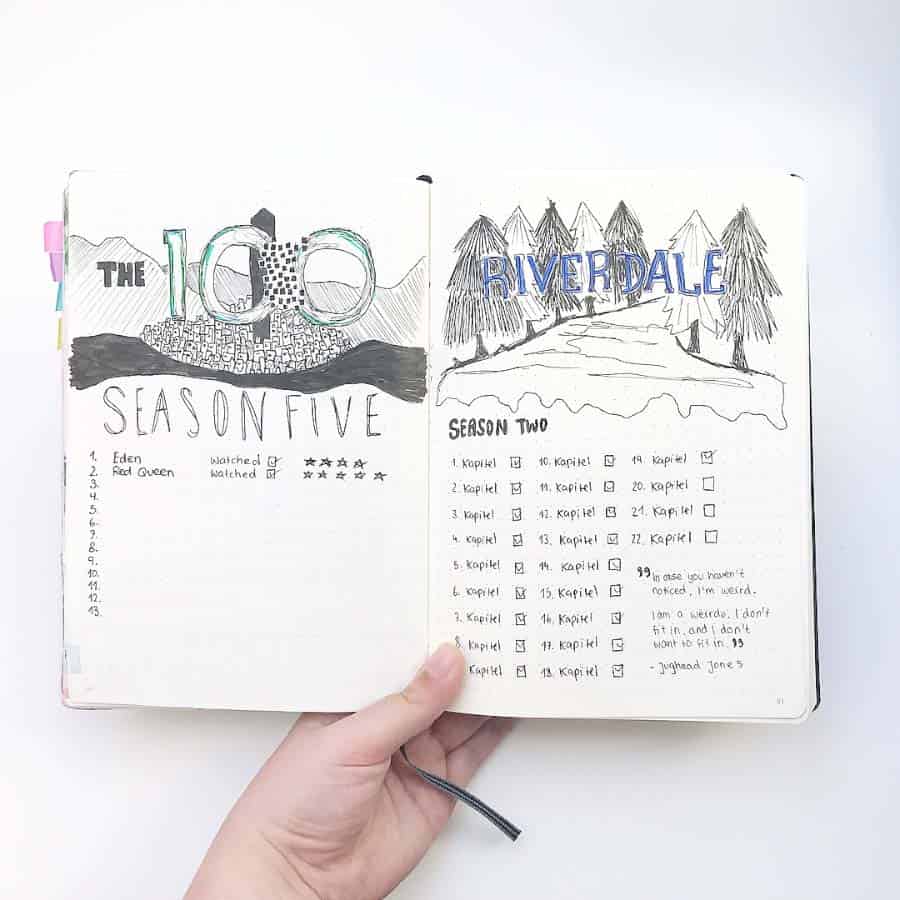 THE 100
SEASON FIVE
1. Eden watched ☑ ☆☆☆☆
2. Red Queen watched ☑ ☆☆☆☆☆
3.
4.
5.
6.
7.
8.
9.
10.
11.
12.
13.
RIVERDALE
SEASON TWO
1. Kapitel ☑ 10. Kapitel ☑ 19. Kapitel ☑
2. Kapitel ☑ 11. Kapitel ☑ 20. Kapitel ☐
3. Kapitel ☑ 12. Kapitel ☑ 21. Kapitel ☐
4. Kapitel ☑ 13. Kapitel ☑ 22. Kapitel ☐
5. Kapitel ☑ 14. Kapitel ☑
6. Kapitel ☑ 15. Kapitel ☑
7. Kapitel ☑ 16. Kapitel ☑
8. Kapitel ☑ 17. Kapitel ☑
Kapitel ☑ 18. Kapitel ☑
"In case you haven't
noticed, I'm weird.
I am a weirdo. I don't
fit in, and I don't
want to fit in."
- Jughead Jones